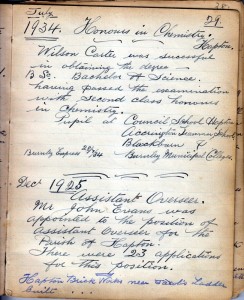 July 29
1934. Honours in Chemistry.
Hapton.
Wilson Carter was successful
in obtaining the degree
B Sc. Bachelor of Science.
having passed the examination
with second class honours
in Chemistry.
Pupil at Council School Hapton
Accrington Technical School
Blackburn
Burnley Express /34 Burnley Municipal College
Dec 1925
Assistant Overseer.
Mr John Evans was
appointed to the position of
Assistant Overseer for the
Parish of Hapton.
There were 23 applications
for this position.
Hapton Brick Works near Ladder
built